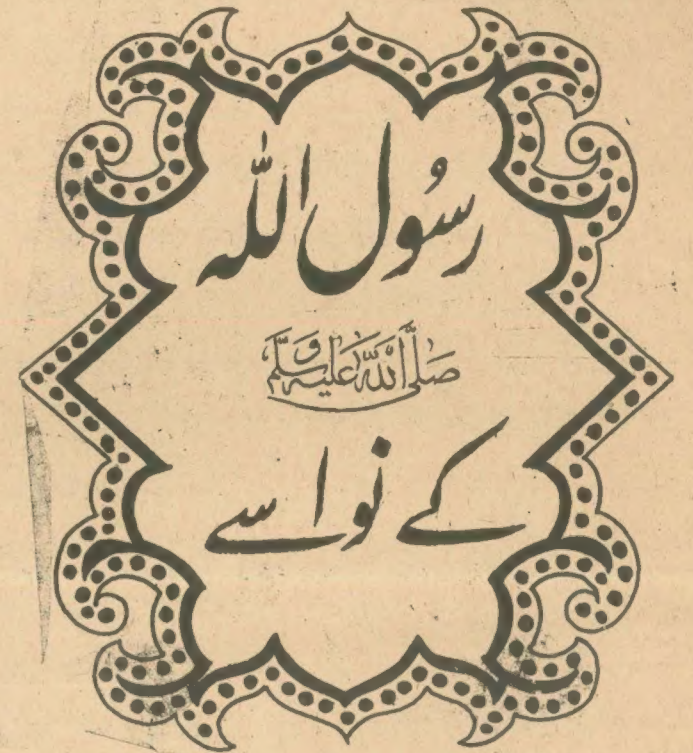 رسُول اللّٰہ
صَلَّى اللّٰه عَلَيْهِ وَسَلَّم
کے نواسے